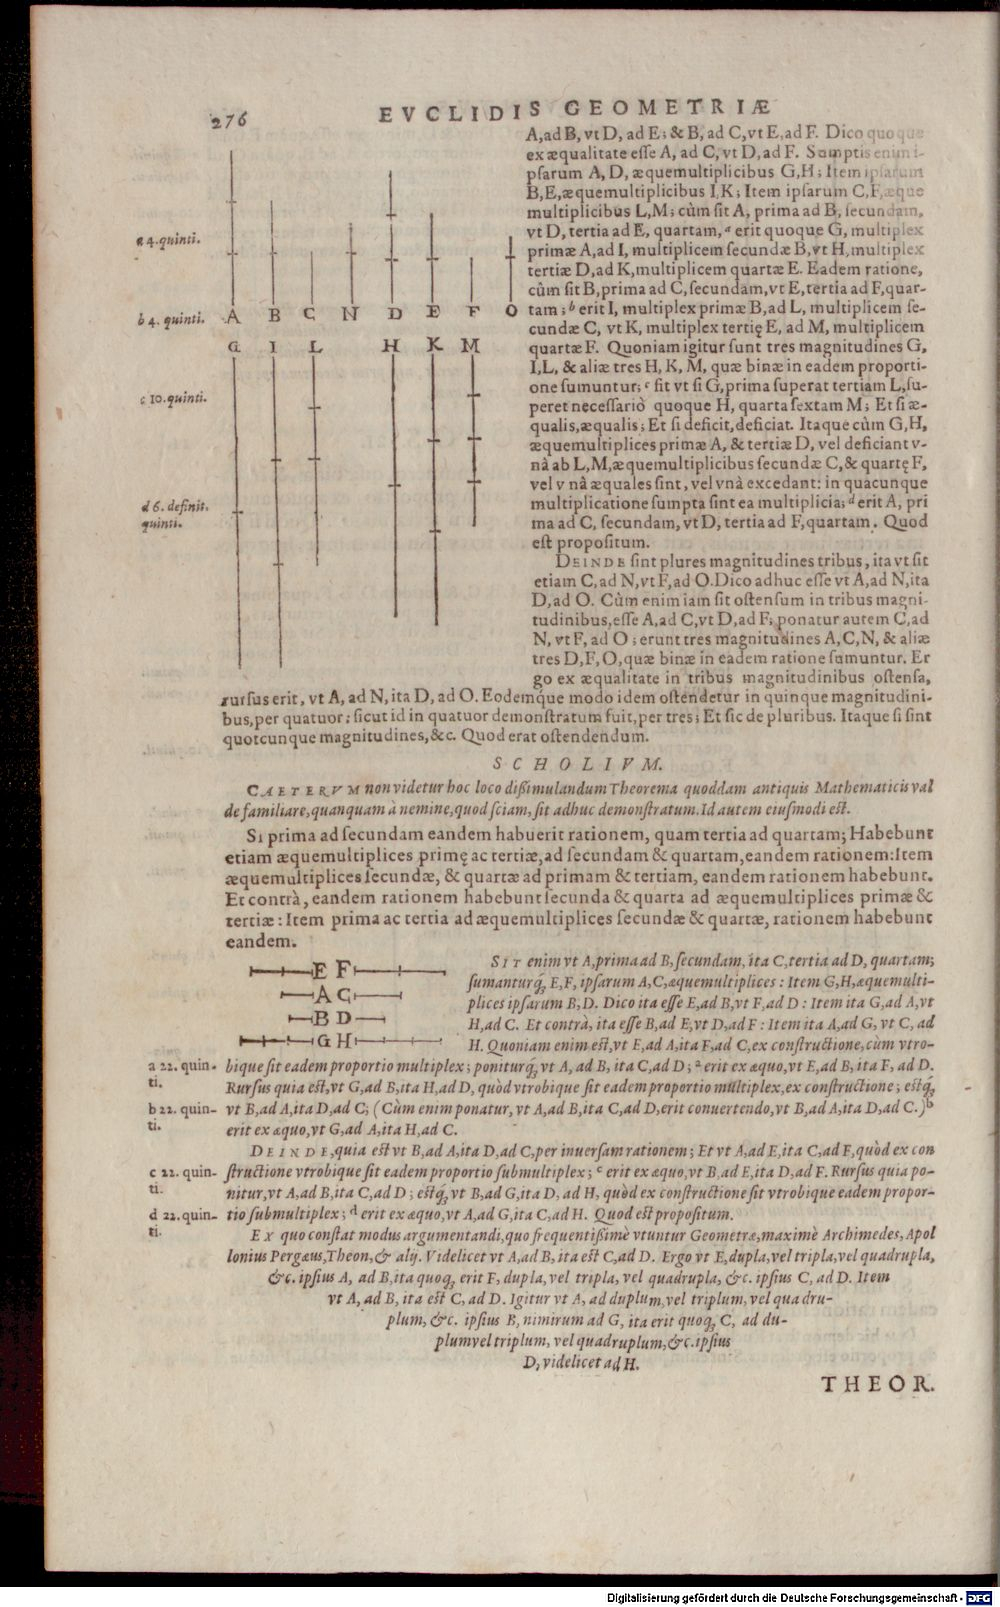 276
EVCLIDIS GEOMETRIÆ
A, ad B, vt D, ad E; & B, ad C, vt E, ad F. Dico quoque
ex æqualitate eſſe A, ad C, vt D, ad F. Sumptis enim i-
pſarum A, D, æquemultiplicibus G, H; Item ipſarum
B, E, æquemultiplicibus I, K; Item ipſarum C, F, æque
multiplicibus L, M; cùm ſit A, prima ad B, ſecundam,
vt D, tertia ad E, quartam, ᵃ erit quoque G, multiplex
primæ A, ad I, multiplicem ſecundæ B, vt H, multiplex
tertiæ D, ad K, multiplicem quartæ E. Eadem ratione,
cûm ſit B, prima ad C, ſecundam, vt E, tertia ad F, quar-
tam; ᵇ erit I, multiplex primæ B, ad L, multiplicem ſe-
cundæ C, vt K, multiplex tertię E, ad M, multiplicem
quartæ F. Quoniam igitur ſunt tres magnitudines G,
I, L, & aliæ tres H, K, M, quæ binæ in eadem proporti-
one ſumuntur; ᶜ fit vt ſi G, prima ſuperat tertiam L, ſu-
peret neceſſariò quoque H, quarta ſextam M; Et ſi æ-
qualis, æqualis; Et ſi deficit, deficiat. Itaque cùm G, H,
æquemultiplices primæ A, & tertiæ D, vel deficiant v-
nà ab L, M, æquemultiplicibus ſecundæ C, & quartę F,
vel vnà æquales ſint, vel vnà excedant: in quacunque
multiplicatione ſumpta ſint ea multiplicia; ᵈ erit A, pri
ma ad C, ſecundam, vt D, tertia ad F, quartam. Quod
eſt propoſitum.
DEINDE ſint plures magnitudines tribus, ita vt ſit
etiam C, ad N, vt F, ad O. Dico adhuc eſſe vt A, ad N, ita
D, ad O. Cùm enim iam ſit oſtenſum in tribus magni-
tudinibus, eſſe A, ad C, vt D, ad F; ponatur autem C, ad
N, vt F, ad O; erunt tres magnitudines A, C, N, & aliæ
tres D, F, O, quæ binæ in eadem ratione ſumuntur. Er
go ex æqualitate in tribus magnitudinibus oſtenſa,
rurſus erit, vt A, ad N, ita D, ad O. Eodemque modo idem oſtendetur in quinque magnitudini-
bus, per quatuor: ſicut id in quatuor demonſtratum fuit, per tres; Et ſic de pluribus. Itaque ſi ſint
quotcunque magnitudines, &c. Quod erat oſtendendum.
a 4. quinti.
b 4. quinti.
c 10. quinti.
d 6. definit.
quinti.
A B C N D E F O
G I L H K M
SCHOLIVM.
CAETERVM non videtur hoc loco dißimulandum Theorema quoddam antiquis Mathematicis val
de familiare, quanquam à nemine, quod ſciam, ſit adhuc demonſtratum. Id autem eiuſmodi eſt.
SI prima ad ſecundam eandem habuerit rationem, quam tertia ad quartam; Habebunt
etiam æquemultiplices primę ac tertiæ, ad ſecundam & quartam, eandem rationem: Item
æquemultiplices ſecundæ, & quartæ ad primam & tertiam, eandem rationem habebunt.
Et contrà, eandem rationem habebunt ſecunda & quarta ad æquemultiplices primæ &
tertiæ: Item prima ac tertia ad æquemultiplices ſecundæ & quartæ, rationem habebunt
eandem.
E F
A C
B D
G H
SIT enim vt A, prima ad B, ſecundam, ita C, tertia ad D, quartam;
ſumanturq́; E, F, ipſarum A, C, æquemultiplices: Item G, H, æquemulti-
plices ipſarum B, D. Dico ita eſſe E, ad B, vt F, ad D: Item ita G, ad A, vt
H, ad C. Et contrà, ita eſſe B, ad E, vt D, ad F: Item ita A, ad G, vt C, ad
H. Quoniam enim eſt, vt E, ad A, ita F, ad C, ex conſtructione, cùm vtro-
bique ſit eadem proportio multiplex; poniturq́; vt A, ad B, ita C, ad D; ᵃ erit ex æquo, vt E, ad B, ita F, ad D.
Rurſus quia eſt, vt G, ad B, ita H, ad D, quòd vtrobique ſit eadem proportio multiplex, ex conſtructione; eſtq́;
vt B, ad A, ita D, ad C; (Cùm enim ponatur, vt A, ad B, ita C, ad D, erit conuertendo, vt B, ad A, ita D, ad C.) ᵇ
erit ex æquo, vt G, ad A, ita H, ad C.
DEINDE, quia eſt vt B, ad A, ita D, ad C, per inuerſam rationem; Et vt A, ad E, ita C, ad F, quòd ex con
ſtructione vtrobique ſit eadem proportio ſubmultiplex; ᶜ erit ex æquo, vt B, ad E, ita D, ad F. Rurſus quia po-
nitur, vt A, ad B, ita C, ad D; eſtq́; vt B, ad G, ita D, ad H, quòd ex conſtructione ſit vtrobique eadem propor-
tio ſubmultiplex; ᵈ erit ex æquo, vt A, ad G, ita C, ad H. Quod eſt propoſitum.
a 22. quin-
ti.
b 22. quin-
ti.
c 22. quin-
ti.
d 22. quin-
ti.
EX quo conſtat modus argumentandi, quo frequentißimè vtuntur Geometræ, maximè Archimedes, Apol
lonius Pergæus, Theon, & alij. Videlicet vt A, ad B, ita eſt C, ad D. Ergo vt E, dupla, vel tripla, vel quadrupla,
&c. ipſius A, ad B, ita quoq; erit F, dupla, vel tripla, vel quadrupla, &c. ipſius C, ad D. Item
vt A, ad B, ita eſt C, ad D. Igitur vt A, ad duplum, vel triplum, vel quadru-
plum, &c. ipſius B, nimirum ad G, ita erit quoq; C, ad du-
plum vel triplum, vel quadruplum, &c. ipſius
D, videlicet ad H.
THEOR.
Digitalisierung gefördert durch die Deutsche Forschungsgemeinschaft - DFG